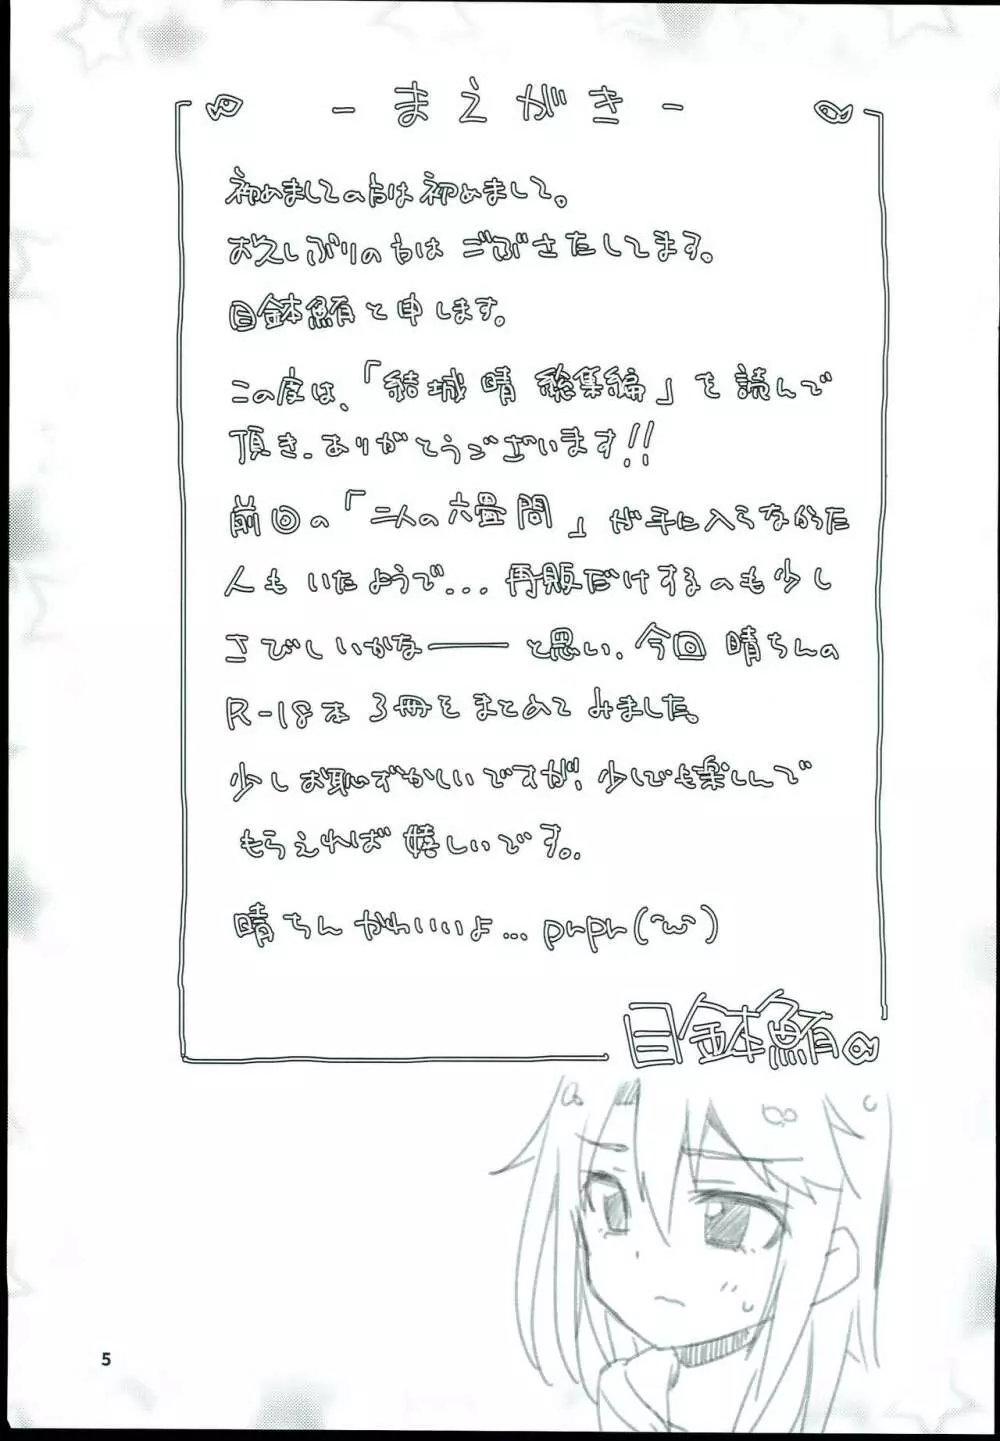 - まえがき -
初めましての方は初めまして。
お久しぶりの方は ごぶさたしてます。
目鉢鮪と申します。
この度は、「結城 晴 総集編」を読んで
頂き、ありがとうございます!!
前回の「二人の六畳間」が手に入らなかった
人も いたようで... 再販だけするのも少し
さびしいかなーーと思い、今回 晴ちんの
R-18本 3冊をまとめてみました。
少しお恥ずかしいですが、少しでも楽しんで
もらえれば 嬉しいです。
晴ちん かわいいよ... prpr(~ω~)
目鉢鮪
5